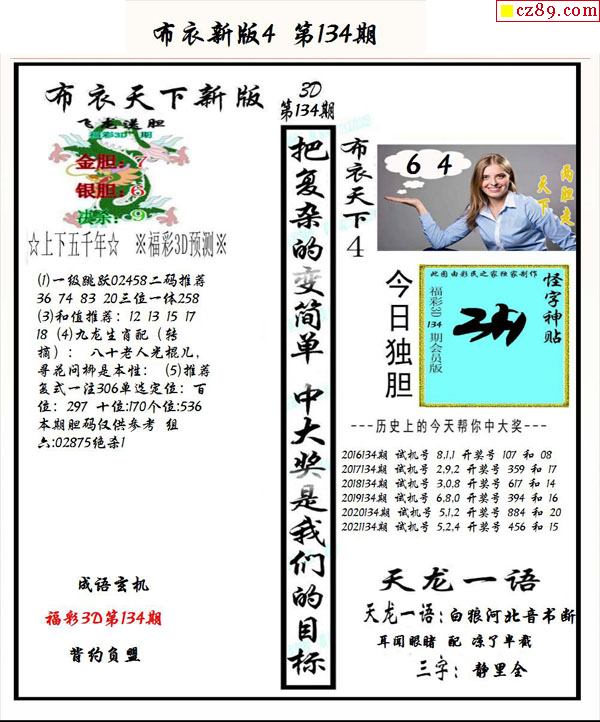 cz89.com
布衣新版4 第134期
布衣天下新版
飞龙送胆
福彩3D 期
金胆：7
银胆：6
决杀：9
☆上下五千年☆ ※福彩3D预测※
(1)一级跳跃02458二码推荐
36 74 83 20三位一体258
(3)和值推荐：12 13 15 17
18 (4)九龙生肖配（转
摘）：八十老人光棍儿，
寻花问柳是本性：(5)推荐
复式一注306单选定位：百
位：297 十位:170个位:536
本期胆码仅供参考 组
六:02875绝杀1
成语玄机
福彩3D第134期
背约负盟
3D
第134期
把复杂的变简单 中大奖是我们的目标
布衣天下4
6 4
两胆走
天下
今日独胆
此图由彩民之家独家制作
福彩3D 134 期会员版
怪字神贴
---历史上的今天帮你中大奖---
2016134期 试机号 8,1,1 开奖号 107 和 08
2017134期 试机号 2,9,2 开奖号 359 和 17
2018134期 试机号 3,0,8 开奖号 617 和 14
2019134期 试机号 6,8,0 开奖号 394 和 16
2020134期 试机号 5,1,2 开奖号 884 和 20
2021134期 试机号 5,2,4 开奖号 456 和 15
天龙一语
天龙一语：白狼河北音书断
耳闻眼睹 配 凉了半截
三字：静里全